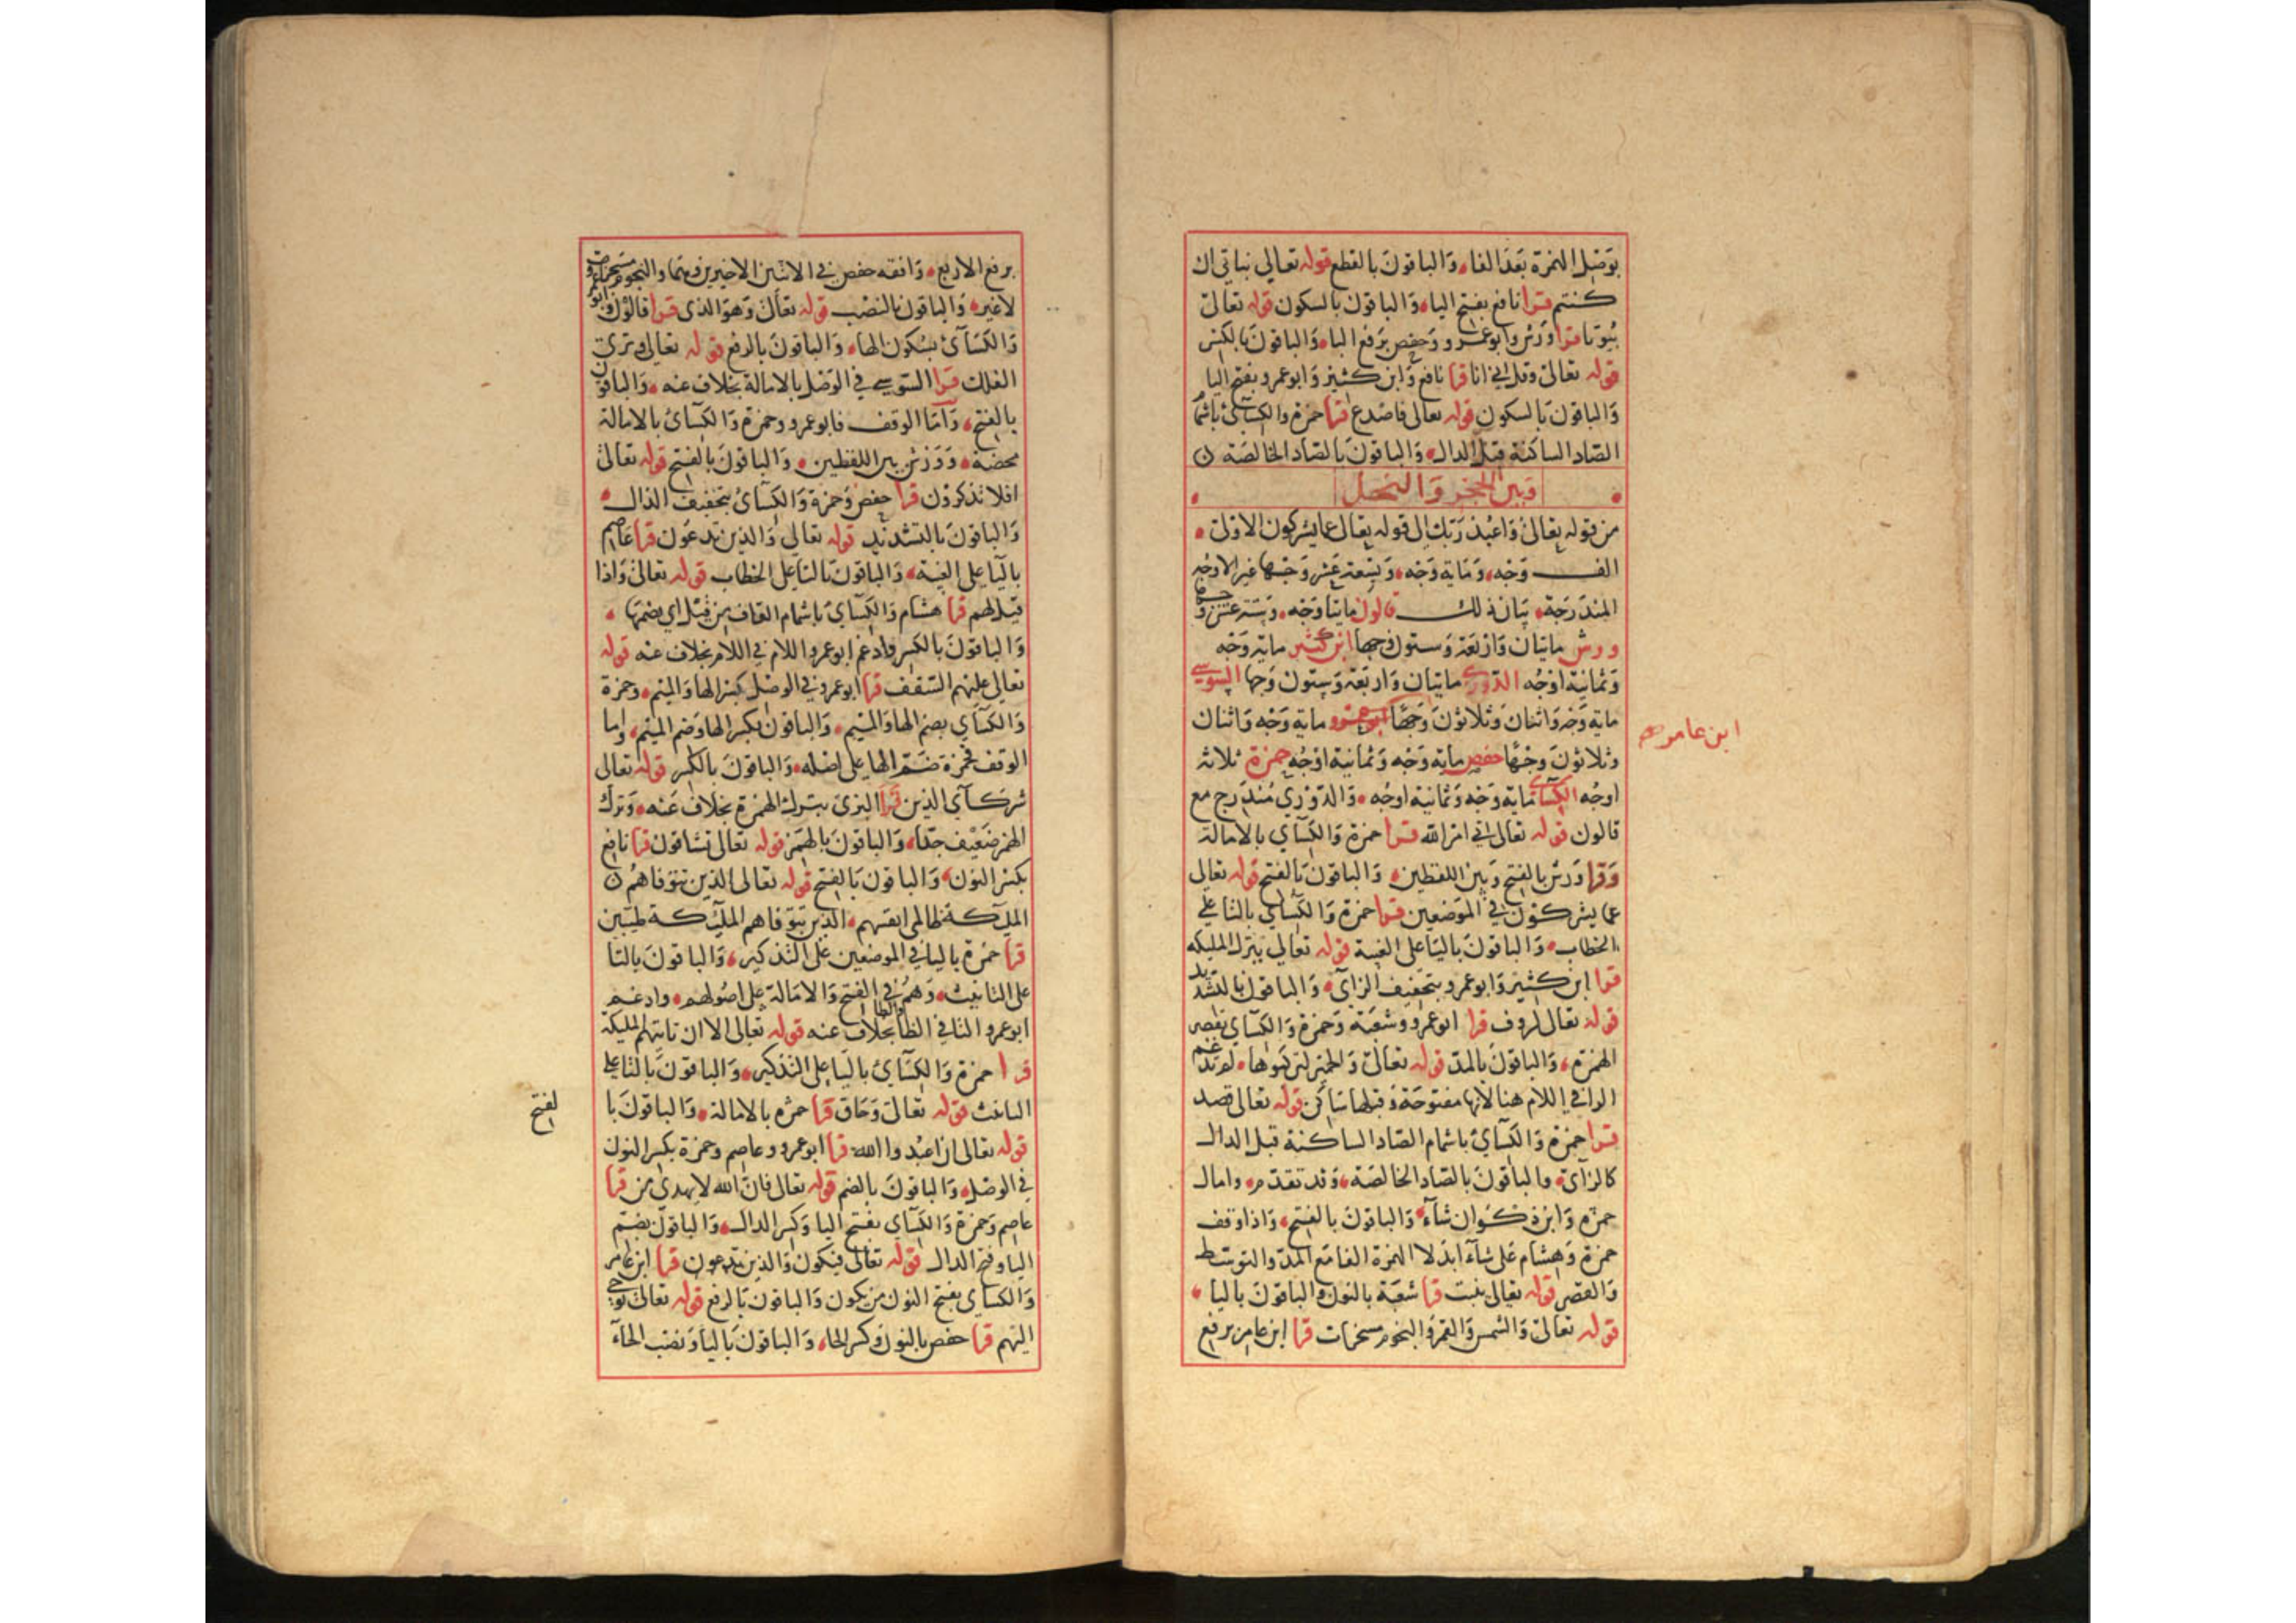 بوصل الهمزة بعد الفا، والباقون بالقطع قوله تعالي بناتي ان
كنتم قرا نافع بفتح اليا، والباقون بالسكون قوله تعالي
بيوتا قرا ورش وابو عمرو وحفص برفع البا، والباقون بالكسر
قوله تعالي وقل اني انا قرا نافع وابن كثير وابو عمرو بفتح اليا
والباقون بالسكون قوله تعالي فاصدع قرا حمزة والكسآئ باشمام
الصاد الساكنة قبل الدال، والباقون بالصاد الخالصة
وبين الحجر والنحل
من قوله تعالي واعبد ربك الي قوله تعالي عما يشركون الاولي،
الف وجه، وماية وجه، وتسعة عشر وجها غير الاوجه
المندرجة، بيان ذلك قالون مايتا وجه، وستة عشر وجها
ورش مايتان واربعة وستون وجها ابن كثير ماية وجه
وثمانية اوجه الدوري مايتان واربعة وستون وجها السوسي
ماية وجه واثنان وثلاثون وجها ابو عمرو ماية وجه واثنان
ابن عامر
وثلاثون وجها حفص ماية وجه وثمانية اوجه حمزة ثلاثة
اوجه الكسآئ ماية وجه وثمانية اوجه، والدوري مندرج مع
قالون قوله تعالي اتي امر الله قرا حمزة والكسآي بالامالة
وقرا ورش بالفتح وبين اللفظين، والباقون بالفتح قوله تعالي
عما يشركون في الموضعين قرا حمزة والكسآي بالتا علي
الخطاب، والباقون باليا علي الغيبة قوله تعالي ينزل المليكه
قرا ابن كثير وابو عمرو بتخفيف الزاي، والباقون بالتشديد
قوله تعالي لروف قرا ابو عمرو وشعبة وحمزة والكسآي بقصر
الهمزة، والباقون بالمد قوله تعالي والحمير لتركبوها، لم تدغم
الرا في اللام هنا لانها مفتوحة وقبلها ساكن قوله تعالي قصد
قرا حمزة والكسآئ باشمام الصاد الساكنة قبل الدال
كالزآي، والباقون بالصاد الخالصة، وقد تقدم، وامال
حمزه وابن ذكوان شآء، والباقون بالفتح، واذا وقف
حمزة وهشام علي شآء ابدلا الهمزة الفا مع المد والتوسط
والقصر قوله تعالي ينبت قرا شعبة بالنون والباقون باليا،
قوله تعالي والشمس والقمر والنجوم مسخرات قرا ابن عامر برفع
برفع الاربع، وافقه حفص في الاثنين الاخيرين وهما والنجوم مسخرات
لا غير، والباقون بالنصب قوله تعالي وهو الذي قرا قالون وابو عمرو
والكسآئ بسكون الها، والباقون بالرفع قوله تعالي وتري
الفلك قرا السوسي في الوصل بالامالة بخلاف عنه، والباقون
بالفتح، واما الوقف فابو عمرو وحمزة والكسآئ بالامالة
محضة، وورش بين اللفظين، والباقون بالفتح قوله تعالي
افلا تذكرون قرا حفص وحمزة والكسآئ بتخفيف الذال،
والباقون بالتشديد قوله تعالي والذين تدعون قرا عاصم
باليا علي الغيبة، والباقون بالتا علي الخطاب قوله تعالي واذا
قيل لهم قرا هشام والكسآي باشمام القاف من قيل اي بضمها،
والباقون بالكسر وادغم ابو عمرو اللام في اللام بخلاف عنه قوله
تعالي عليهم السقف قرا ابو عمرو في الوصل بكسر الها والميم، وحمزة
والكسآي بضم الها والميم، والباقون بكسر الها وضم الميم، واما
الوقف فحمزة ضم الها علي اصله، والباقون بالكسر قوله تعالي
شركآي الذين قرا البزي بترك الهمزة بخلاف عنه، وترك
الهمز ضعيف جدا، والباقون بالهمز قوله تعالي تشاقون قرا نافع
بكسر النون، والباقون بالفتح قوله تعالي الذين تتوفاهم
المليكة ظالمي انفسهم، الذين تتوفاهم المليكة طيبين
قرا حمزة باليا في الموضعين علي التذكير، والباقون بالتا
علي التانيث، وهم في الفتح والامالة علي اصولهم، وادغم
ابو عمرو التا في الظا والطا بخلاف عنه قوله تعالي الا ان تاتيهم المليكة
قرا حمزة والكسآئ باليا علي التذكير، والباقون بالتا علي
التانيث قوله تعالي وحاق قرا حمزه بالامالة، والباقون با
لفتح
قوله تعالي ان اعبدوا الله قرا ابو عمرو وعاصم وحمزة بكسر النون
في الوصل، والباقون بالضم قوله تعالي فان الله لا يهدي من قرا
عاصم وحمزة والكسآي بفتح اليا وكسر الدال، والباقون بضم
اليا وفتح الدال قوله تعالي فيكون والذين تدعون قرا ابن عامر
والكساي بفتح النون من يكون والباقون بالرفع قوله تعالي نوحي
اليهم قرا حفص بالنون وكسر الحا، والباقون باليا ونصب الحآء